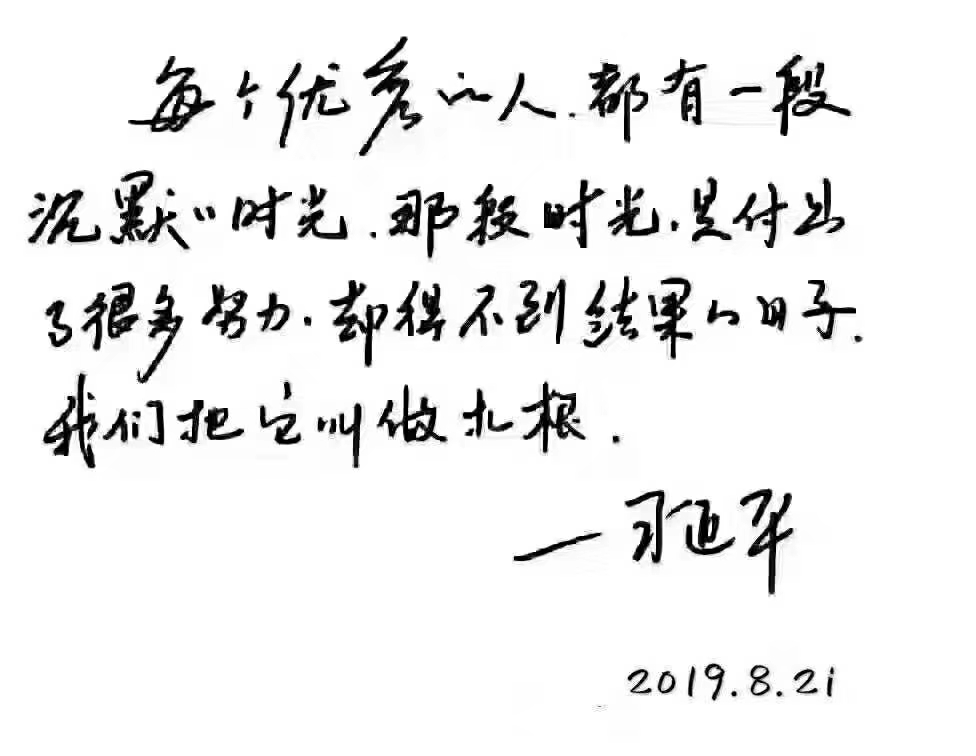 每个优秀的人.都有一段
沉默的时光.那段时光.是付出
了很多努力.却得不到结果的日子.
我们把它叫做扎根.
—习近平
2019.8.21